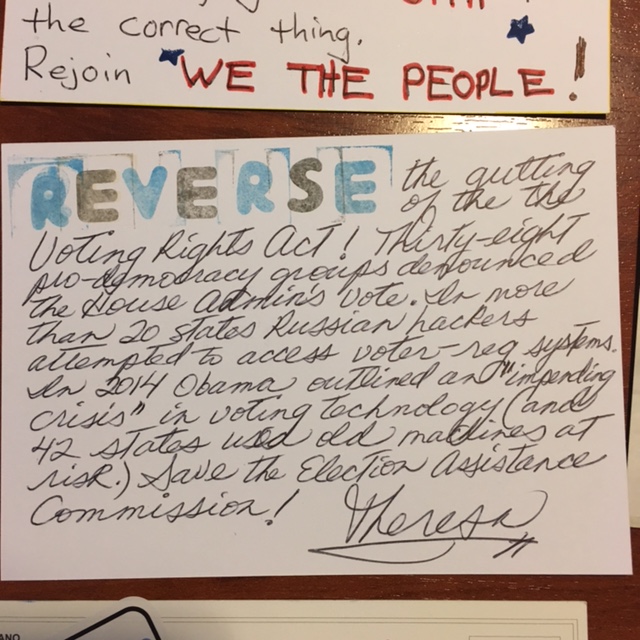 the correct thing.
Rejoin "WE THE PEOPLE!
REVERSE the gutting
of the the
Voting Rights Act! Thirty-eight
pro-democracy groups denounced
the House Admin's vote. In more
than 20 states Russian hackers
attempted to access voter-reg systems.
In 2014 Obama outlined an "impending
crisis" in voting technology (and
42 states used old machines at
risk.) Save the Election Assistance
Commission!
Theresa